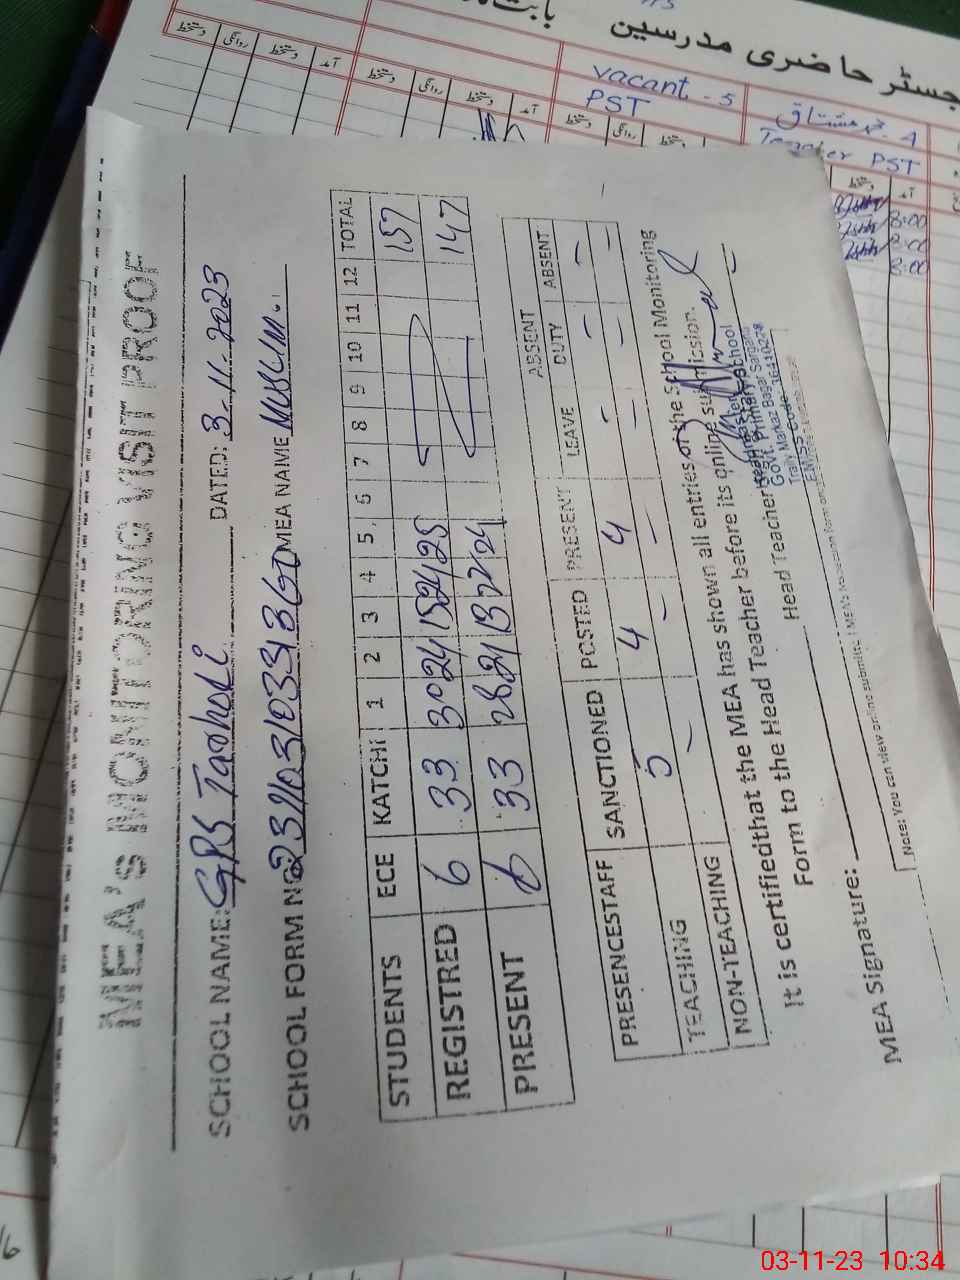 جسٹر حاضری مدرسین بابت
vacant - 5
PST
محمد مشتاق - 4
Teacher PST
دستخط روانگی دستخط آمد دستخط روانگی دستخط آمد دستخط روانگی دستخط
دستخط آمد
8:00
8:00
8:00
MEA's MONITORING VISIT PROOF
SCHOOL NAME: GPS DATED: 3-11-2023
SCHOOL FORM NO MEA NAME
STUDENTS ECE KATCHI 1 2 3 4 5 6 7 8 9 10 11 12 TOTAL
REGISTRED 6 33 30 24 15 24 25 157
PRESENT 6 33 28 21 13 22 24 147
PRESENCESTAFF SANCTIONED POSTED PRESENT LEAVE ABSENT DUTY ABSENT
TEACHING 5 4 4 - - -
NON-TEACHING - - - - - -
It is certifiedthat the MEA has shown all entries on the School Monitoring
Form to the Head Teacher before its online submission.
MEA Signature: Head Teacher
Govt. Primary School
Note: You can view online submitted
03-11-23 10:34